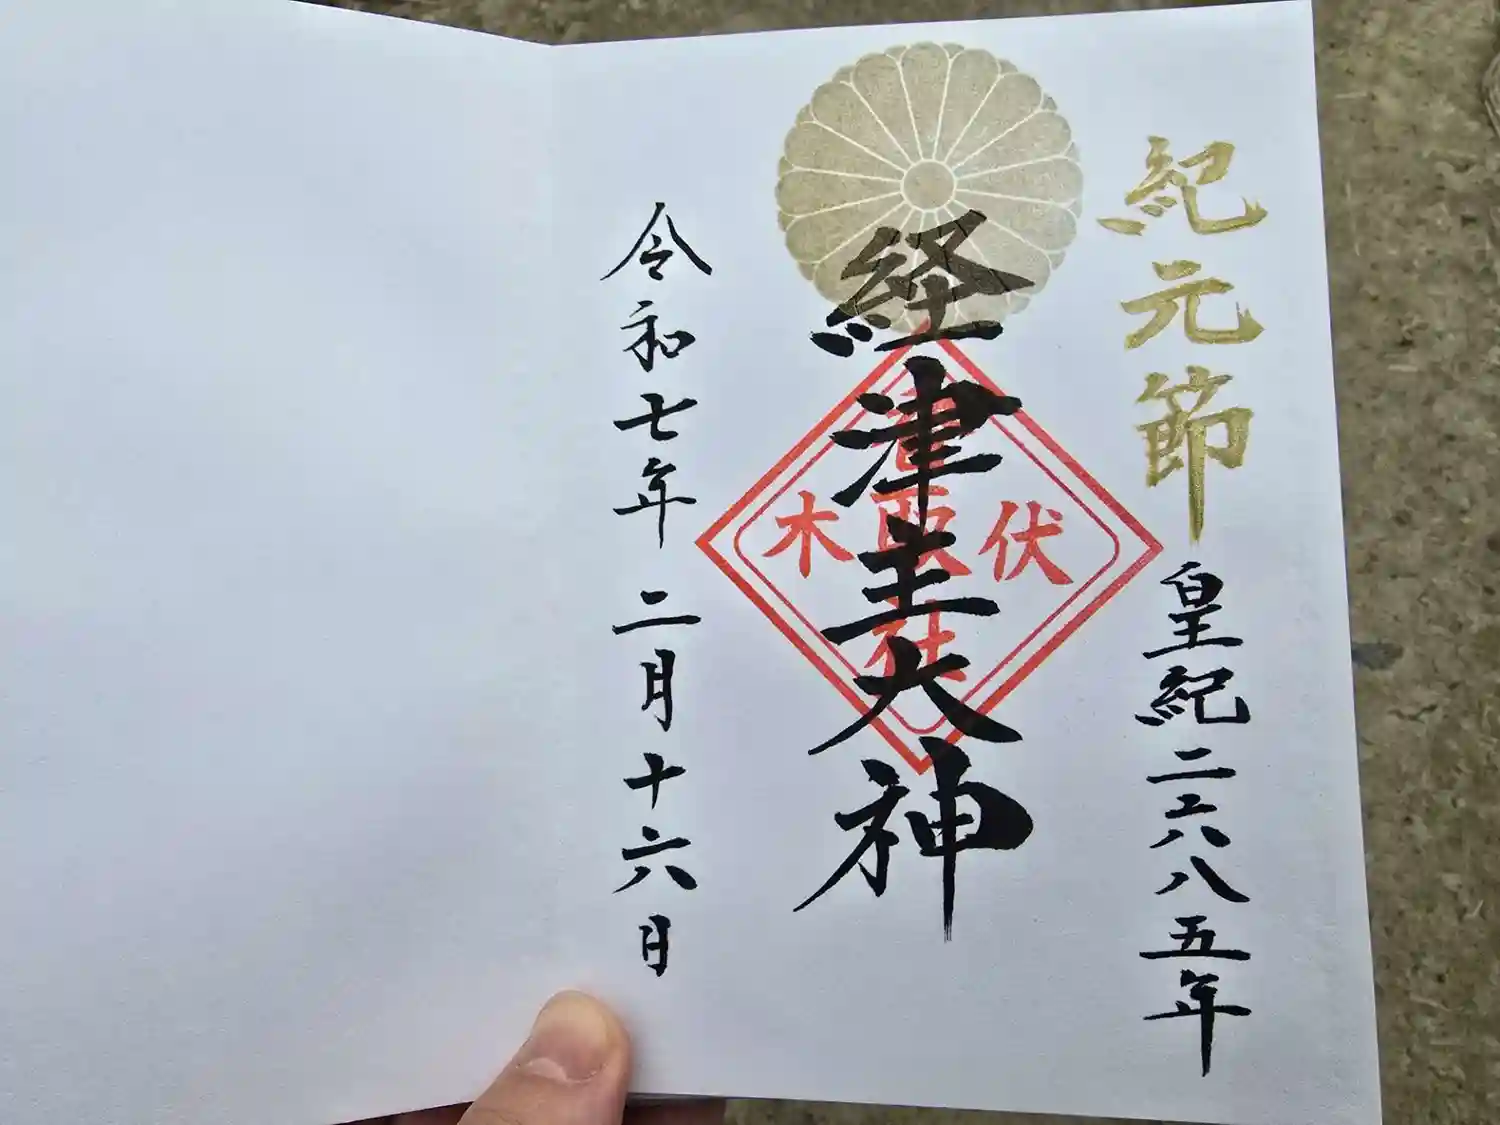 紀元節
皇紀二六八五年
経津主大神
伏木
香取社
令和七年二月十六日